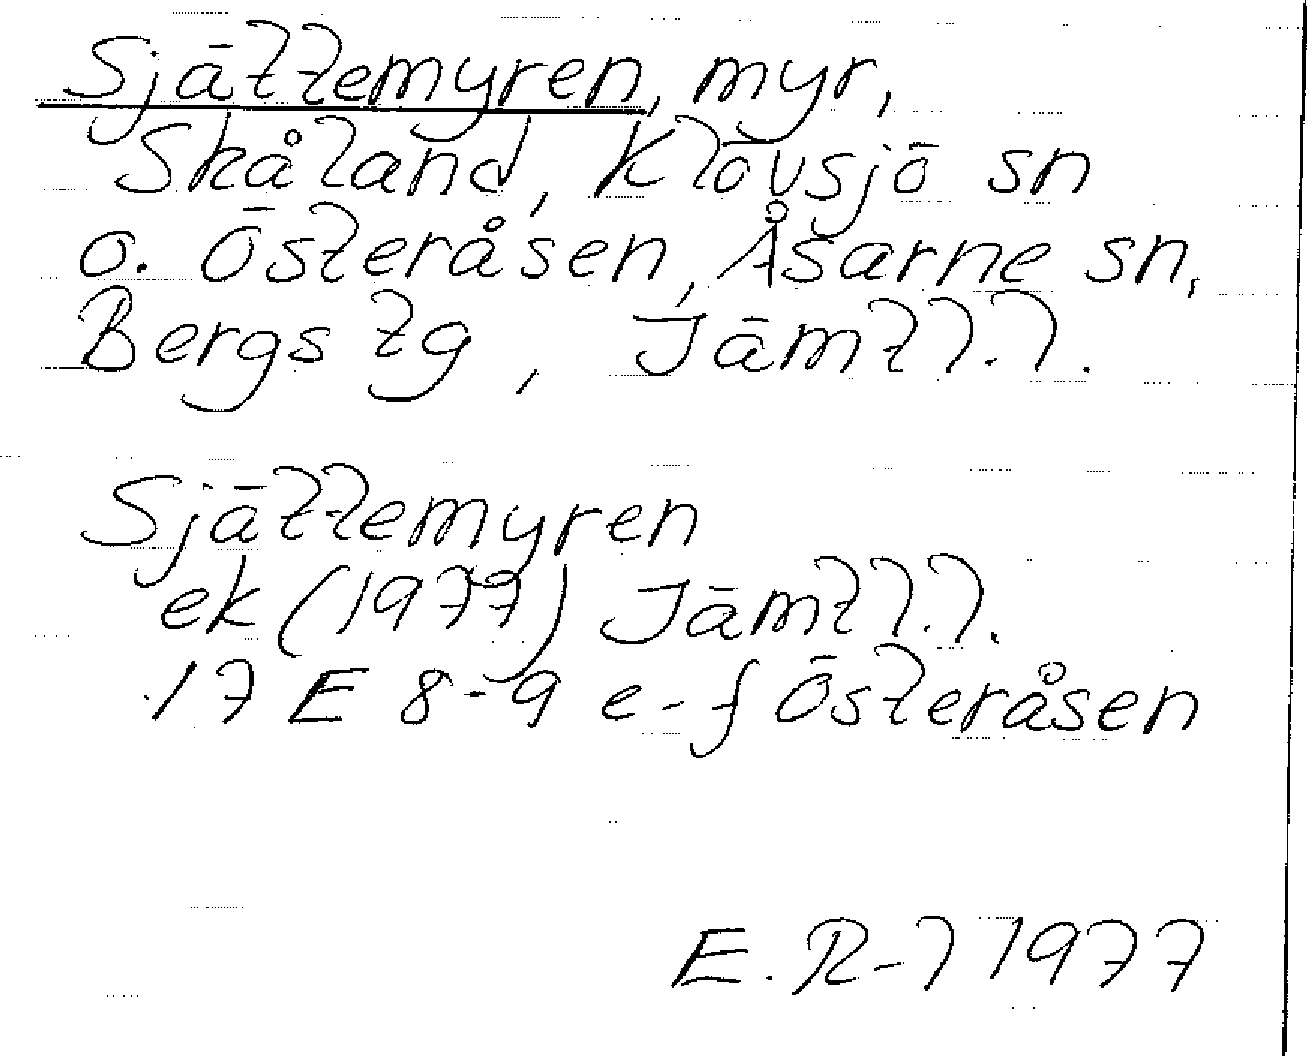 Sjättemyren, myr,
Skåland, Klövsjö sn
o. Österåsen, Åsarne sn,
Bergs tg, Jämtl.l.
Sjättemyren
ek (1977) Jämtl.l.
17 E 8-9 e-f Österåsen
E. R-l 1977